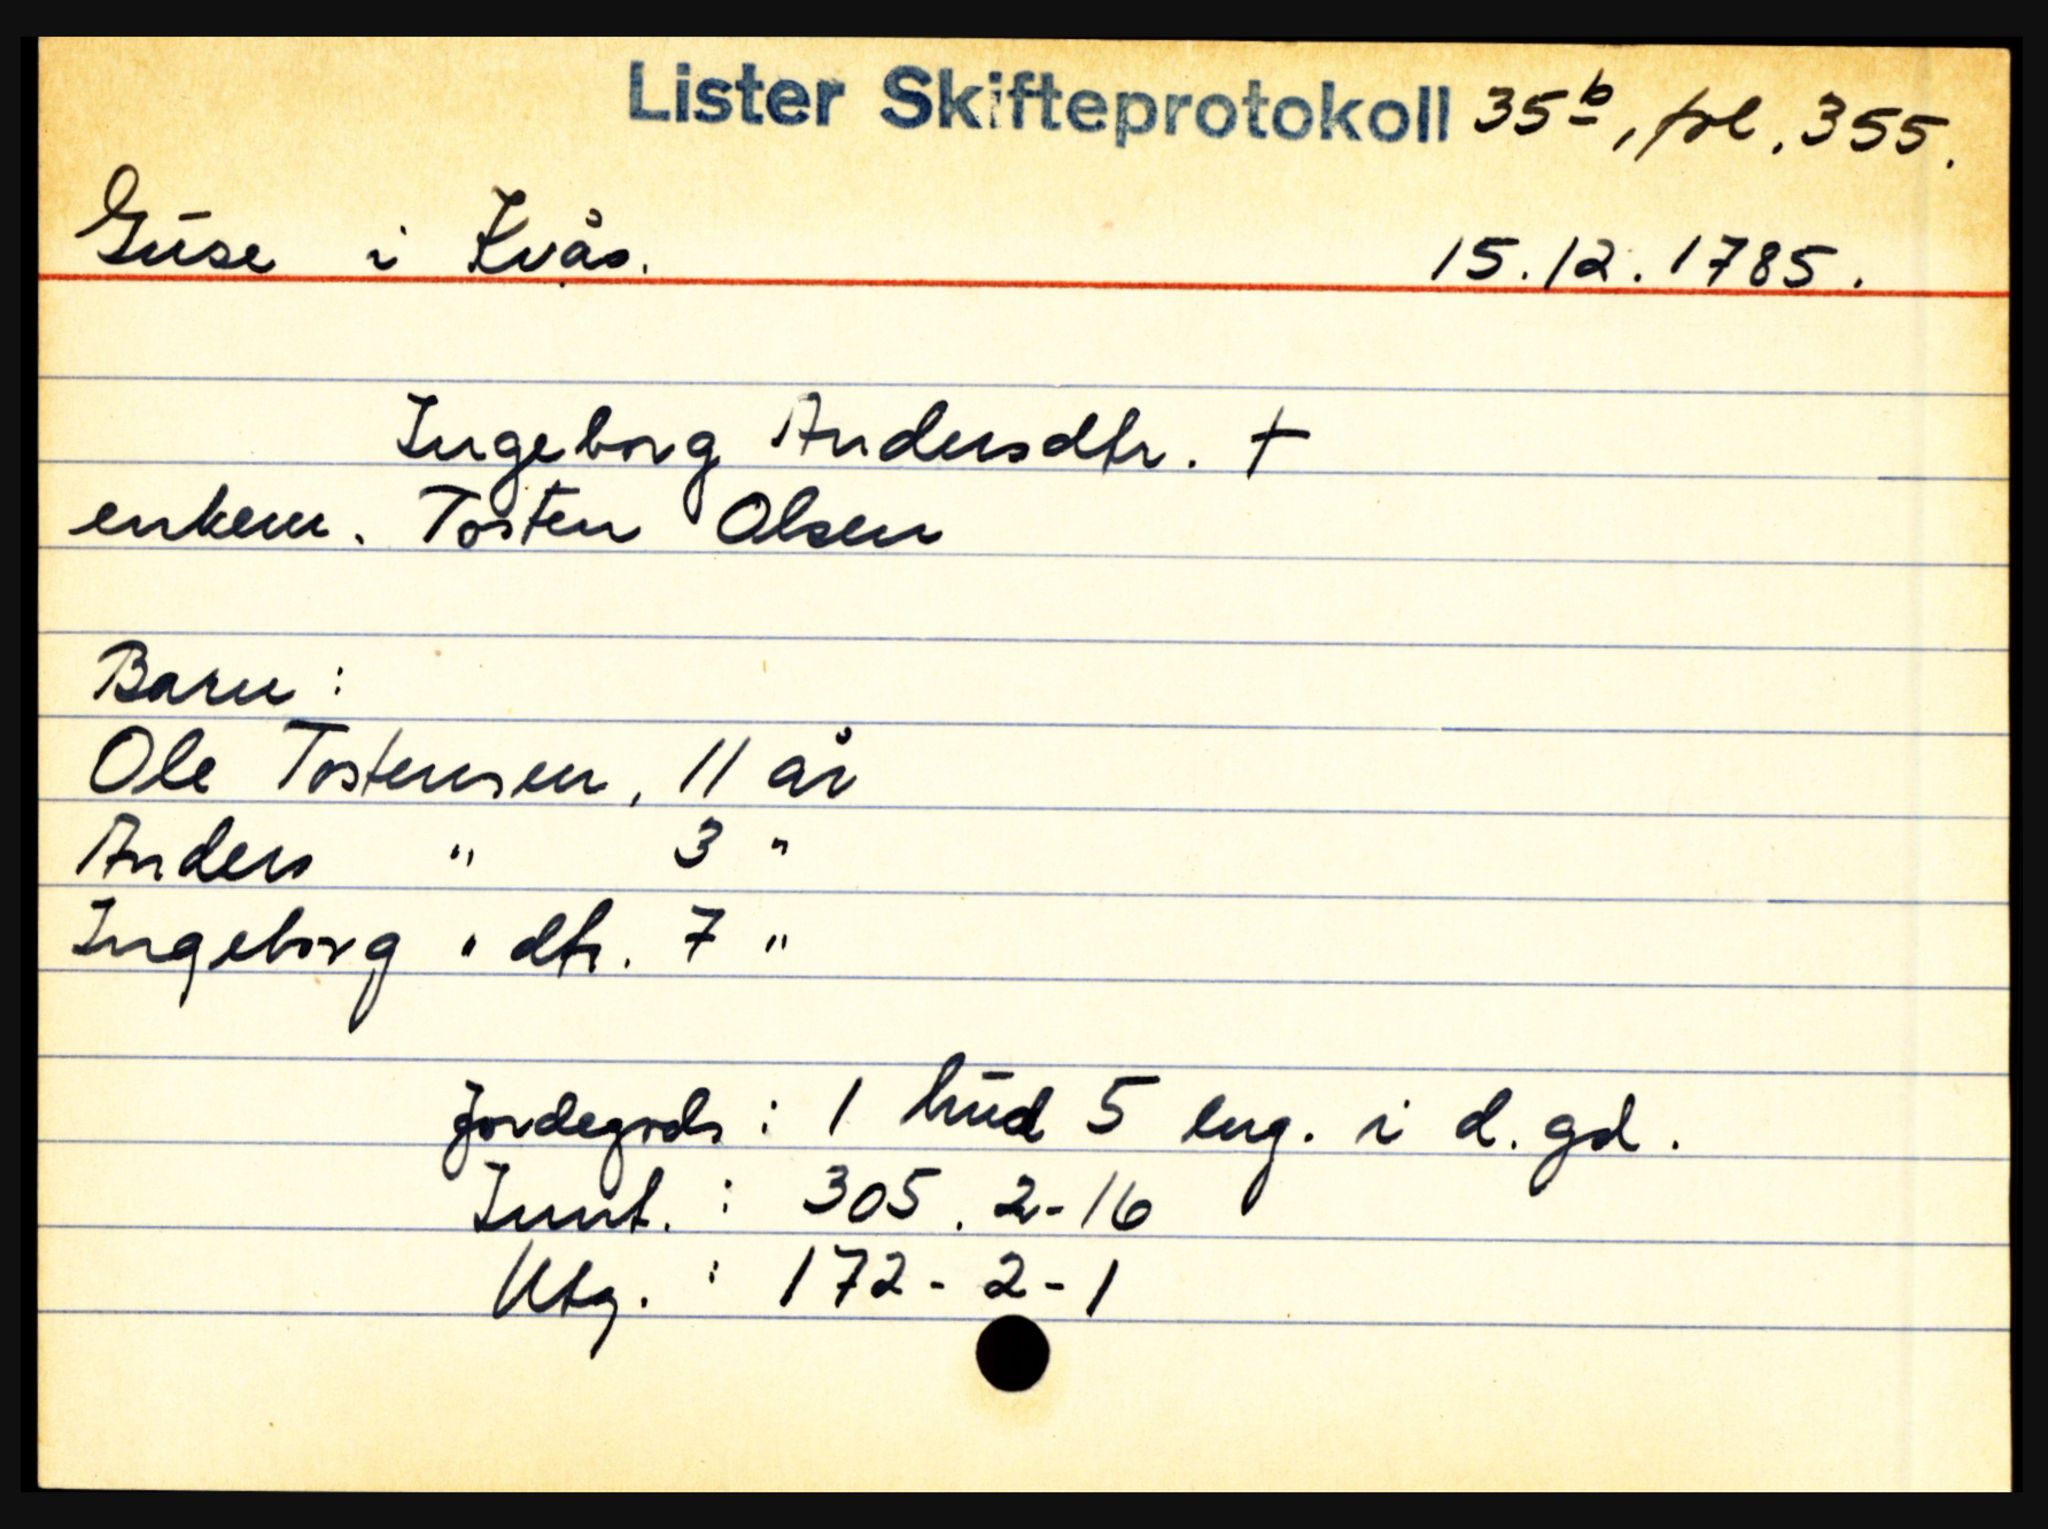 Lister Skifteprotokoll 35b, fol. 355.
Guse i Kvås. 15.12.1785.
Ingeborg Andersdtr. †
enkem. Tosten Olsen
Barn:
Ole Tostensen, 11 år
Anders " 3 "
Ingeborg " dtr. 7 "
Jordegods: 1 hud 5 eng. i d. gd.
Innt. : 305. 2-16
Utg. : 172- 2-1